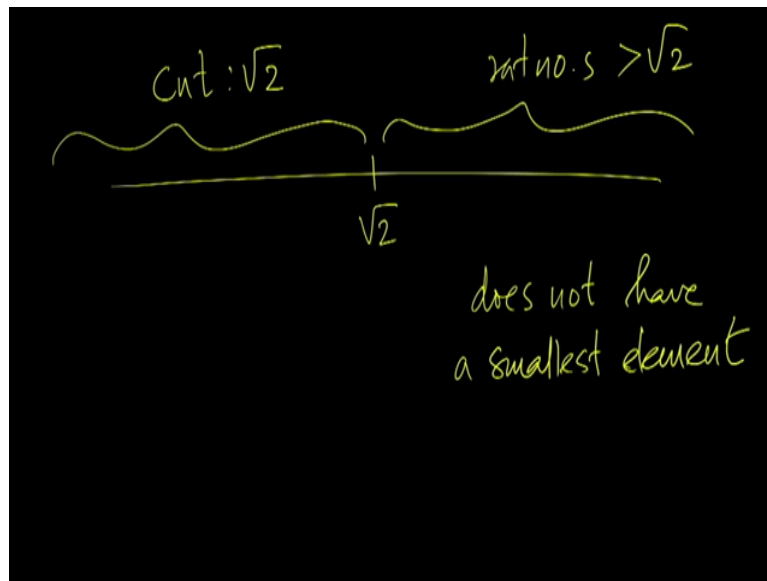 Cut : √2
rat no.s > √2
√2
does not have
a smallest element